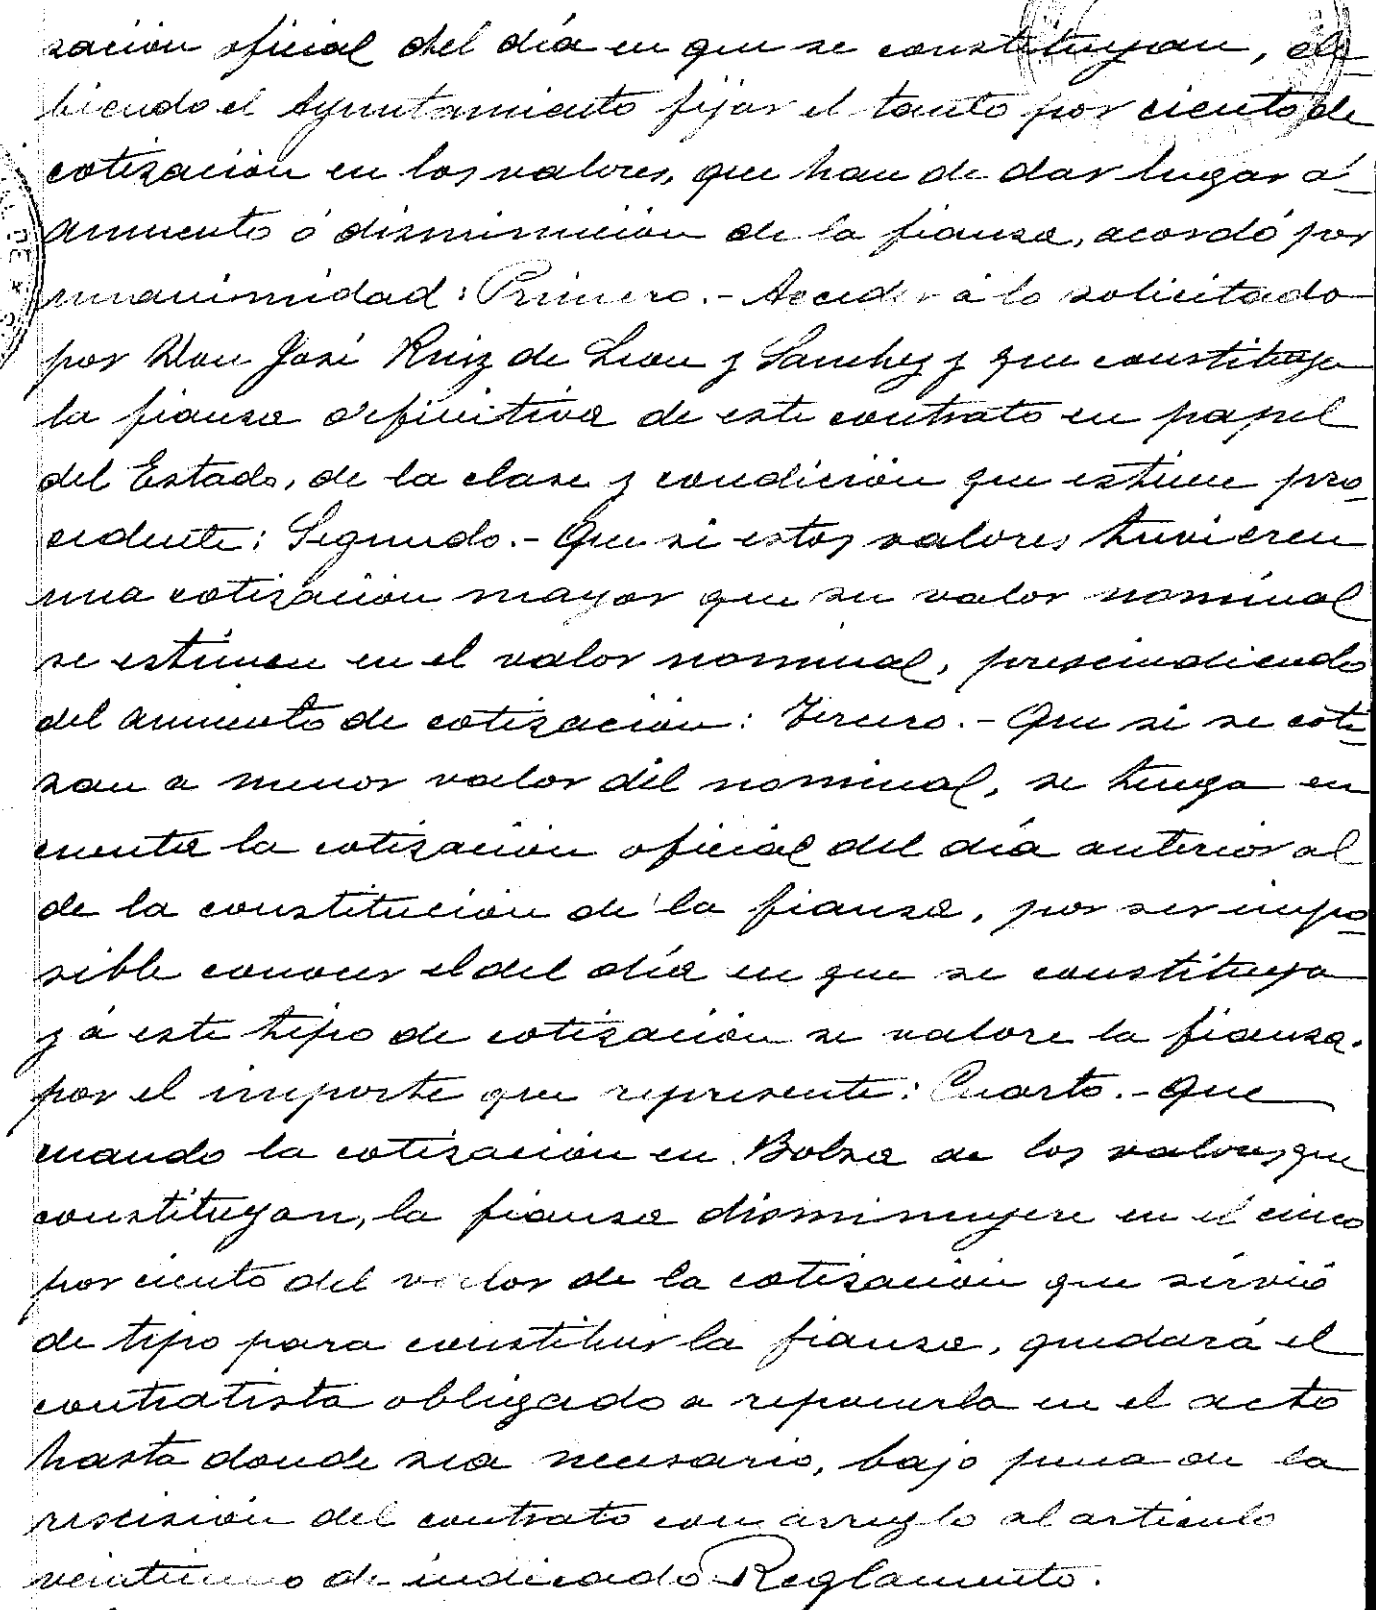 zación oficial del día en que se constituyan, de-
biendo el Ayuntamiento fijar el tanto por ciento de
cotización en los valores, que han de dar lugar á
aumento ó disminución de la fianza, acordó por
unanimidad: Primero.- Acceder á lo solicitado
por Don José Ruiz de Leon y Sanchez y que constituya
la fianza definitiva de este contrato en papel
del Estado, de la clase y condición que estime pro-
cedente: Segundo.- Que si estos valores tuvieren
una cotización mayor que su valor nominal
se estimen en el valor nominal, prescindiendo
del aumento de cotización: Tercero.- Que si se coti-
zan a menor valor del nominal, se tenga en
cuenta la cotización oficial del día anterior al
de la constitución de la fianza, por ser impo-
sible conocer el del día en que se constituya
y á este tipo de cotización se valore la fianza.
por el importe que represente: Cuarto.- Que
cuando la cotización en Bolsa de los valores que
constituyan, la fianza disminuyere en el cinco
por ciento del valor de la cotización que sirvió
de tipo para constituir la fianza, quedará el
contratista obligado a reponerla en el acto
hasta donde sea necesario, bajo pena de la
rescisión del contrato con arreglo al articulo
veintiuno de indicado Reglamento.